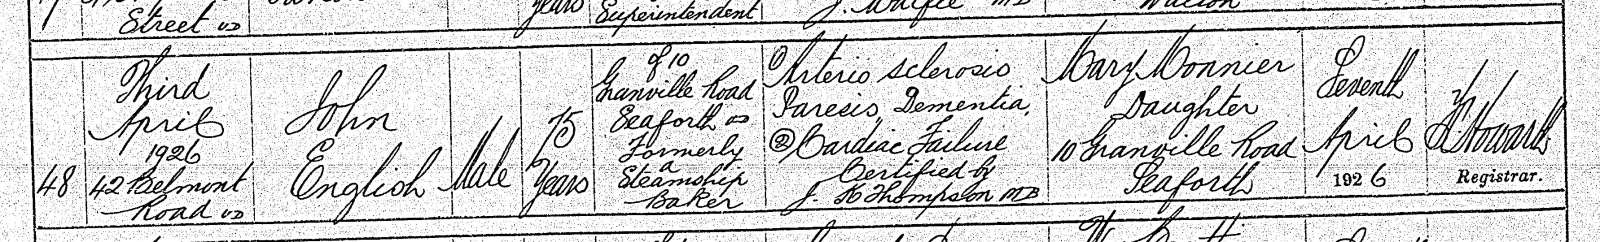 Street UD
years
Superintendent
J.
MB
Walton
48
Third
April
1926
42 Belmont
Road UD
John
English
Male
75
Years
of 10
Granville Road
Seaforth UD
Formerly
a
Steamship
Baker
① Arterio sclerosis
Paresis, Dementia,
② Cardiac Failure
Certified by
J. K Thompson MB
Mary Monnier
Daughter
10 Granville Road
Seaforth
Seventh
April
1926
Howard
Registrar.